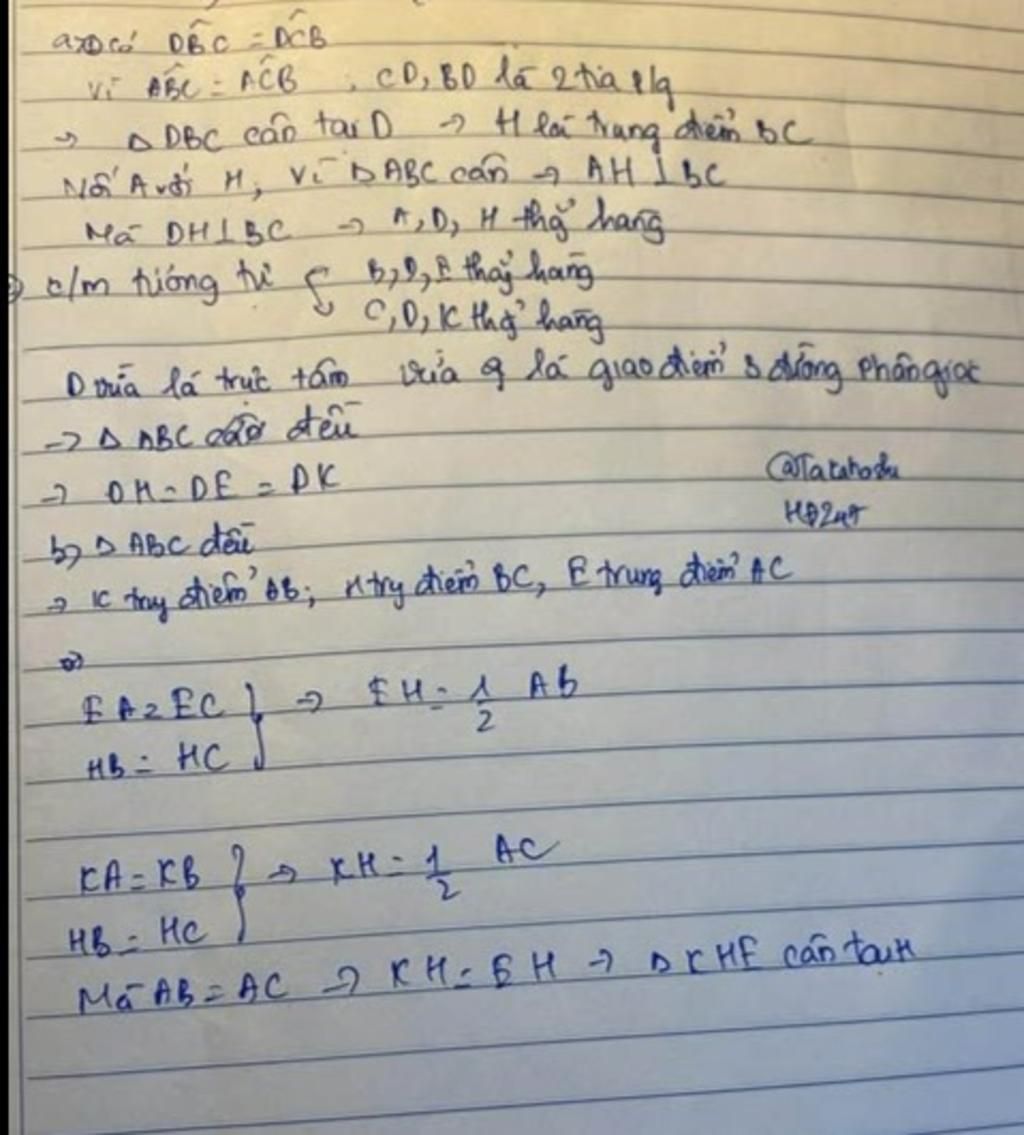 a) Có DB̂C = DĈB
Vì AB̂C = AĈB , CD, BD là 2 tia p/g
→ Δ DBC cân tại D → H là trung điểm BC
Nối A với H, Vì Δ ABC cân → AH ⊥ BC
Mà DH ⊥ BC → A, D, H thẳg hàng
c/m tương tự { B, D, E thẳg hàng
C, D, K thẳg hàng
D vừa là trực tâm vừa là giao điểm 3 đường phân giác
→ Δ ABC đều
→ DH = DE = DK
@Takahodu
b) Δ ABC đều
→ K trg điểm AB; H trg điểm BC, E trung điểm AC
EA = EC } → EH = 1/2 AB
HB = HC
KA = KB } → KH = 1/2 AC
HB = HC
Mà AB = AC → KH = EH → Δ KHE cân tại H